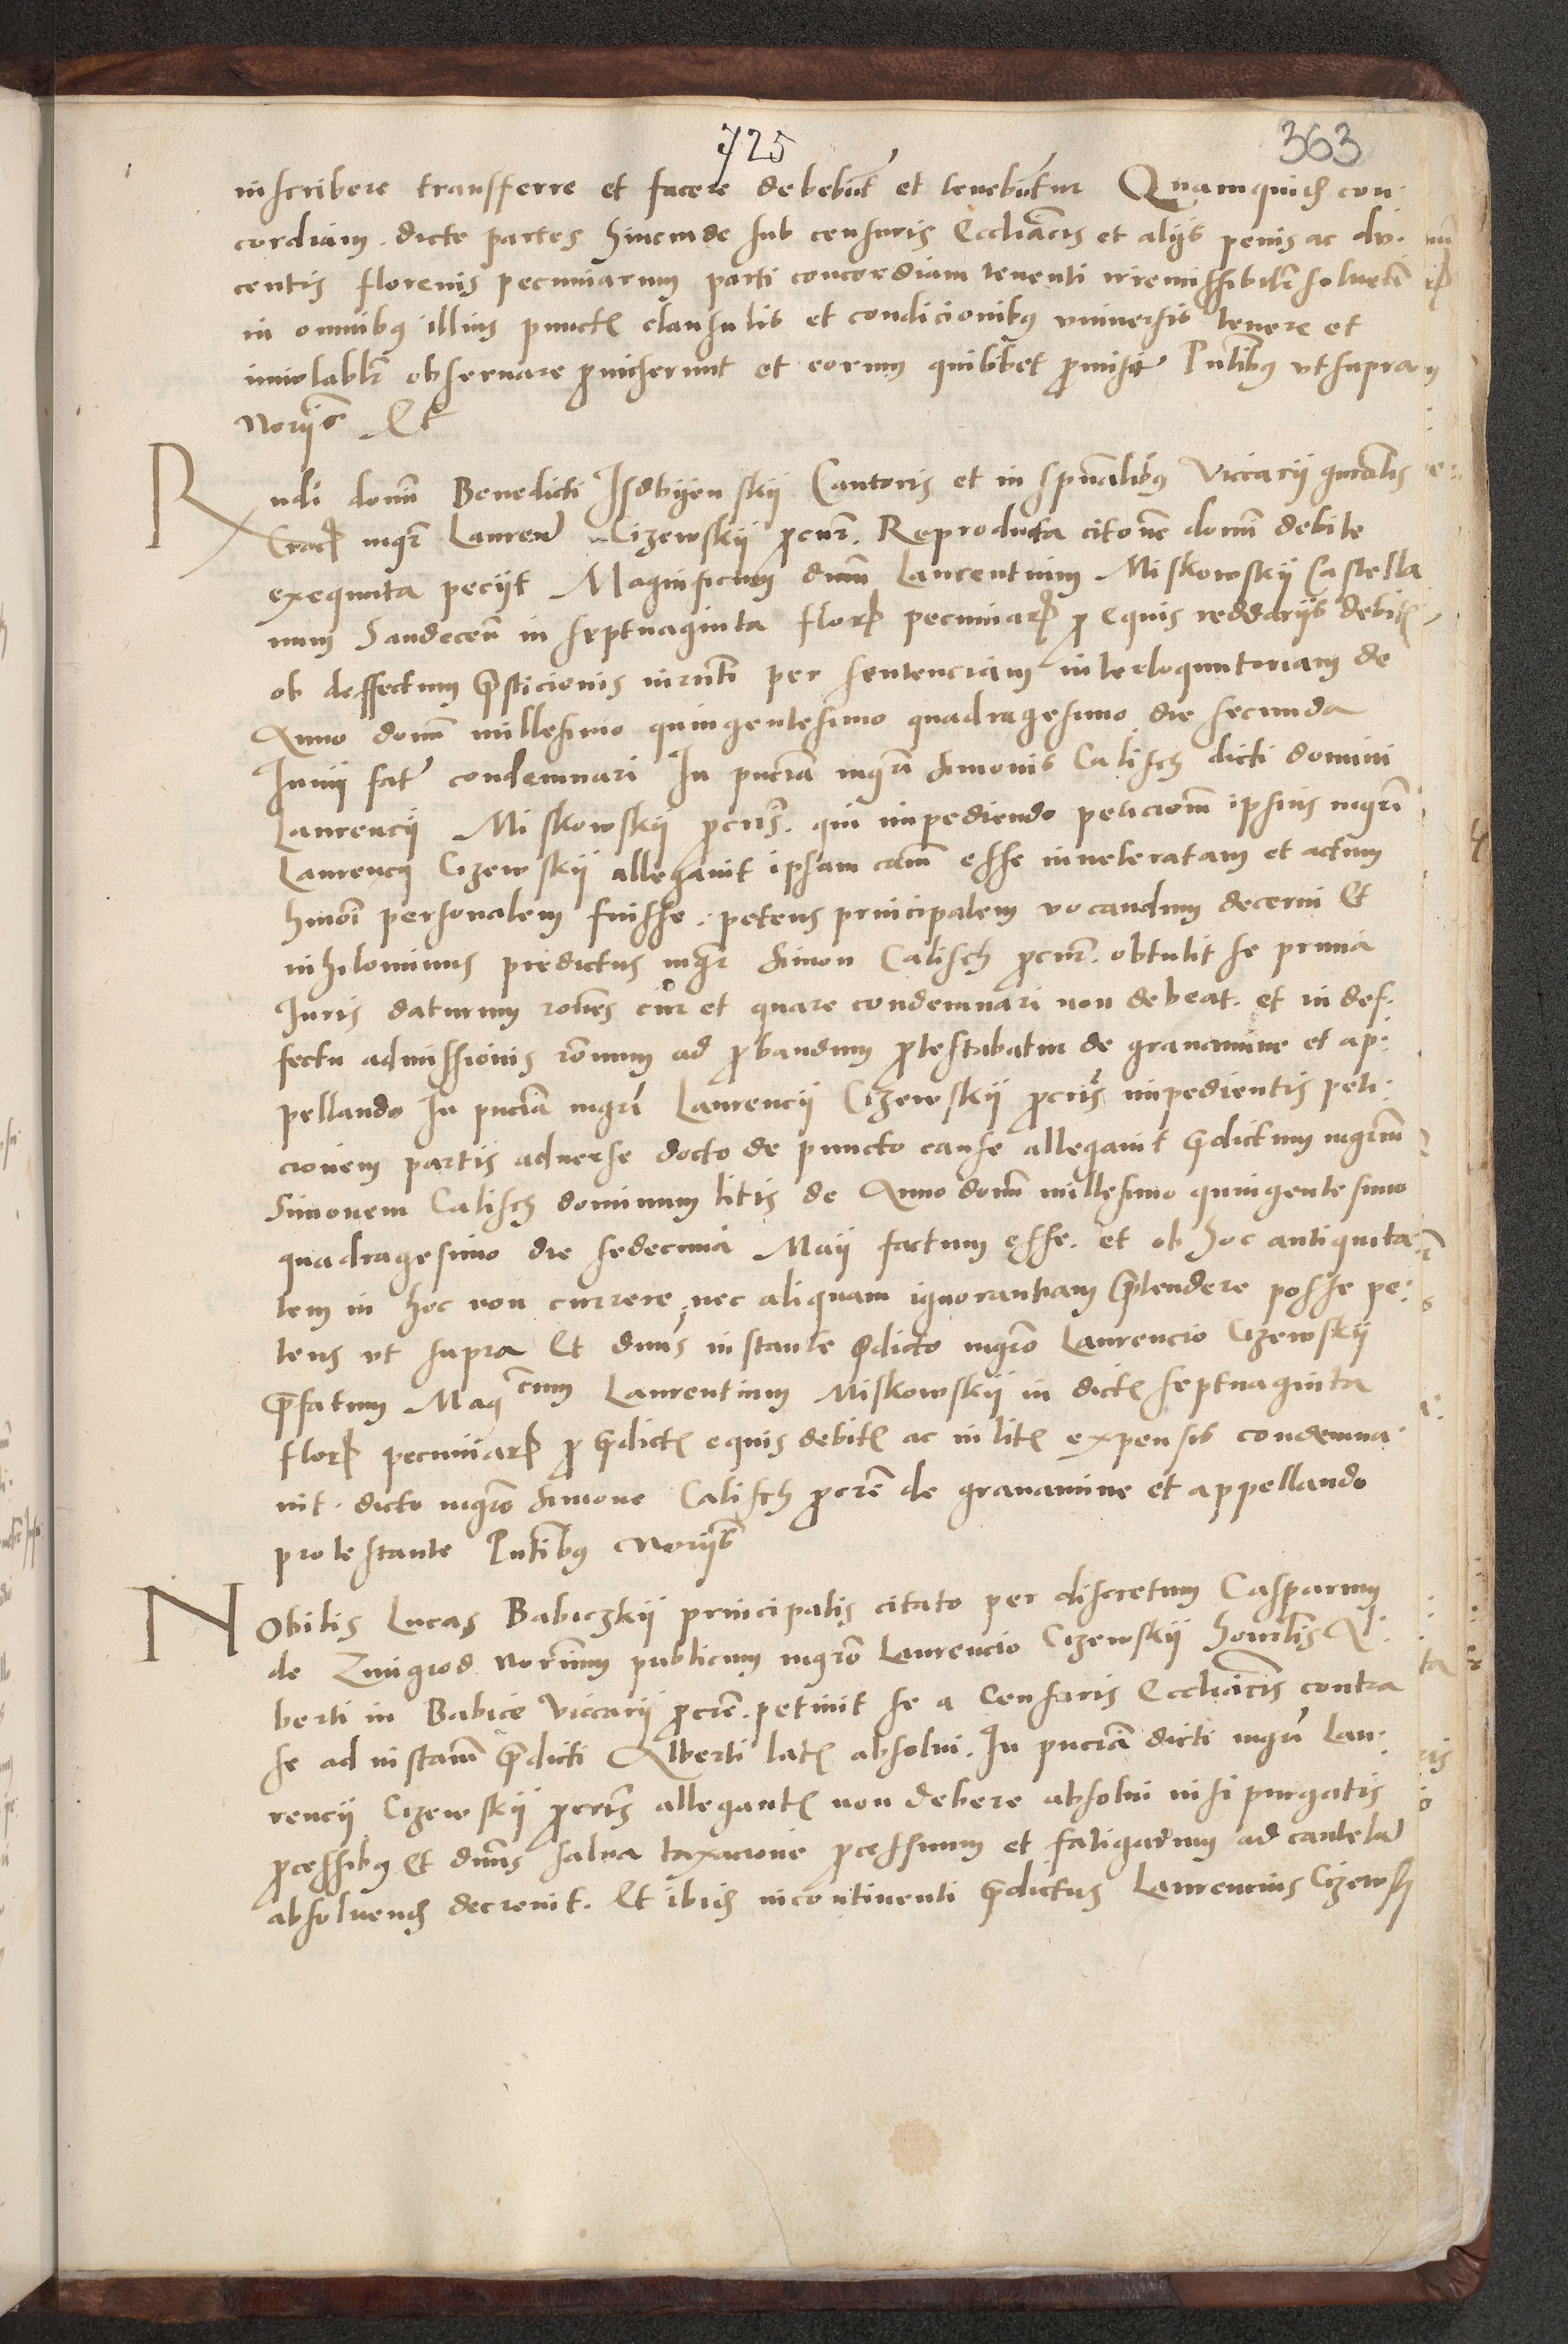 725
363
inscribere transferre et facere debebũt et tenebũtur Quamquid con-
cordiam. dicte partes hincinde sub censuris Eccliãcis et alijs penis ac du-
centis florenis pecuniarum parti concordiam tenenti irremissibilr̃ soluen
in omnibus illius punctis clausulis et condicionibus vniuersis tenere et
inuiolablr̃ obseruare promiserunt et eorum quilibet promisit Pñtibus vt supra
Norijs Et
Rndi domĩ Benedicti Isdbyenskij Cantoris et in spũalibus Viccarij gñralis
Crac mgr̃ Lauren Cizewskij procur. Reproducta citõne domĩ debite
exequuta pecijt Magnificum dnum Laurentium Miskowskij Castella
num Sandecen̄ in septuaginta flor pecuniar pro equis reddarijs debitis
ob deffectum p̃sticionis iurñti per sentenciam interloquutoriam de
Anno domĩ millesimo quingentesimo quadragesimo die secunda
Iunij fat condemnari In pñciã mgrĩ Simonis Calisch dicti domini
Laurencij Miskowskij procris. qui impediendo peticionem ipsius mgri
Laurencij Cizewskij allegauit ipsam cãm esse inueteratam et actum
hmõi personalem fuisse. petens principalem vocandum decerni Et
nihilominus predictus mgr Simon Calisch procur. obtulit se prima
Iuris daturum rões cur et quare condemnari non debeat. et in def-
fectu admissionis rõnum ad probandum protestabatur de grauamine et ap-
pellando In pñciã mgrĩ Laurencij Cizewskij procris impedientis peti-
cionem partis aduerse docto de puncto cause allegauit p̃dictum mgrum
Simonem Calisch dominum litis de Anno domĩ millesimo quingentesimo
quadragesimo die sedecima Maij factum esse. et ob hoc antiquita
tem in hoc non currere, nec aliquam ignorantiam p̃tendere posse pe-
tens vt supra Et dnus instante p̃dicto mgro Laurencio Cizewskij
p̃fatum Mag cum Laurentium Miskowskij in dictis septuaginta
flor pecuniar pro p̃dictis equis debitis ac in litis expensis condemna-
uit. dicto mgro Simone Calisch procre de grauamine et appellando
protestante Pñtibus Norijs
Nobilis Lucas Babiczkij principalis citato per discretum Casparum
de Zmigrod Norium publicum mgro Laurencio Cizewskij honrlis Al-
berti in Babice Viccarij procre. petiuit se a Censuris Eccliãcis contra
se ad instam p̃dicti Alberti latis absolui. In pñciã dicti mgri Lau-
rencij Cizewskij procris allegantis non debere absolui nisi purgatis
processibus Et dnus salua taxacione processuum et fatigarum ad cautelã
absoluend decreuit. Et ibid incontinenti p̃dictus Laurencius Cizewskj